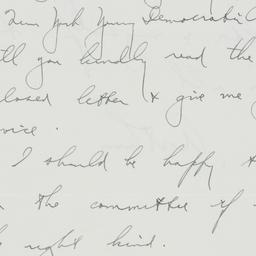 New York Young Democratic C
ll you kindly read the
closed letter & give me
vice.
I should be happy t
the committee if
right kind.